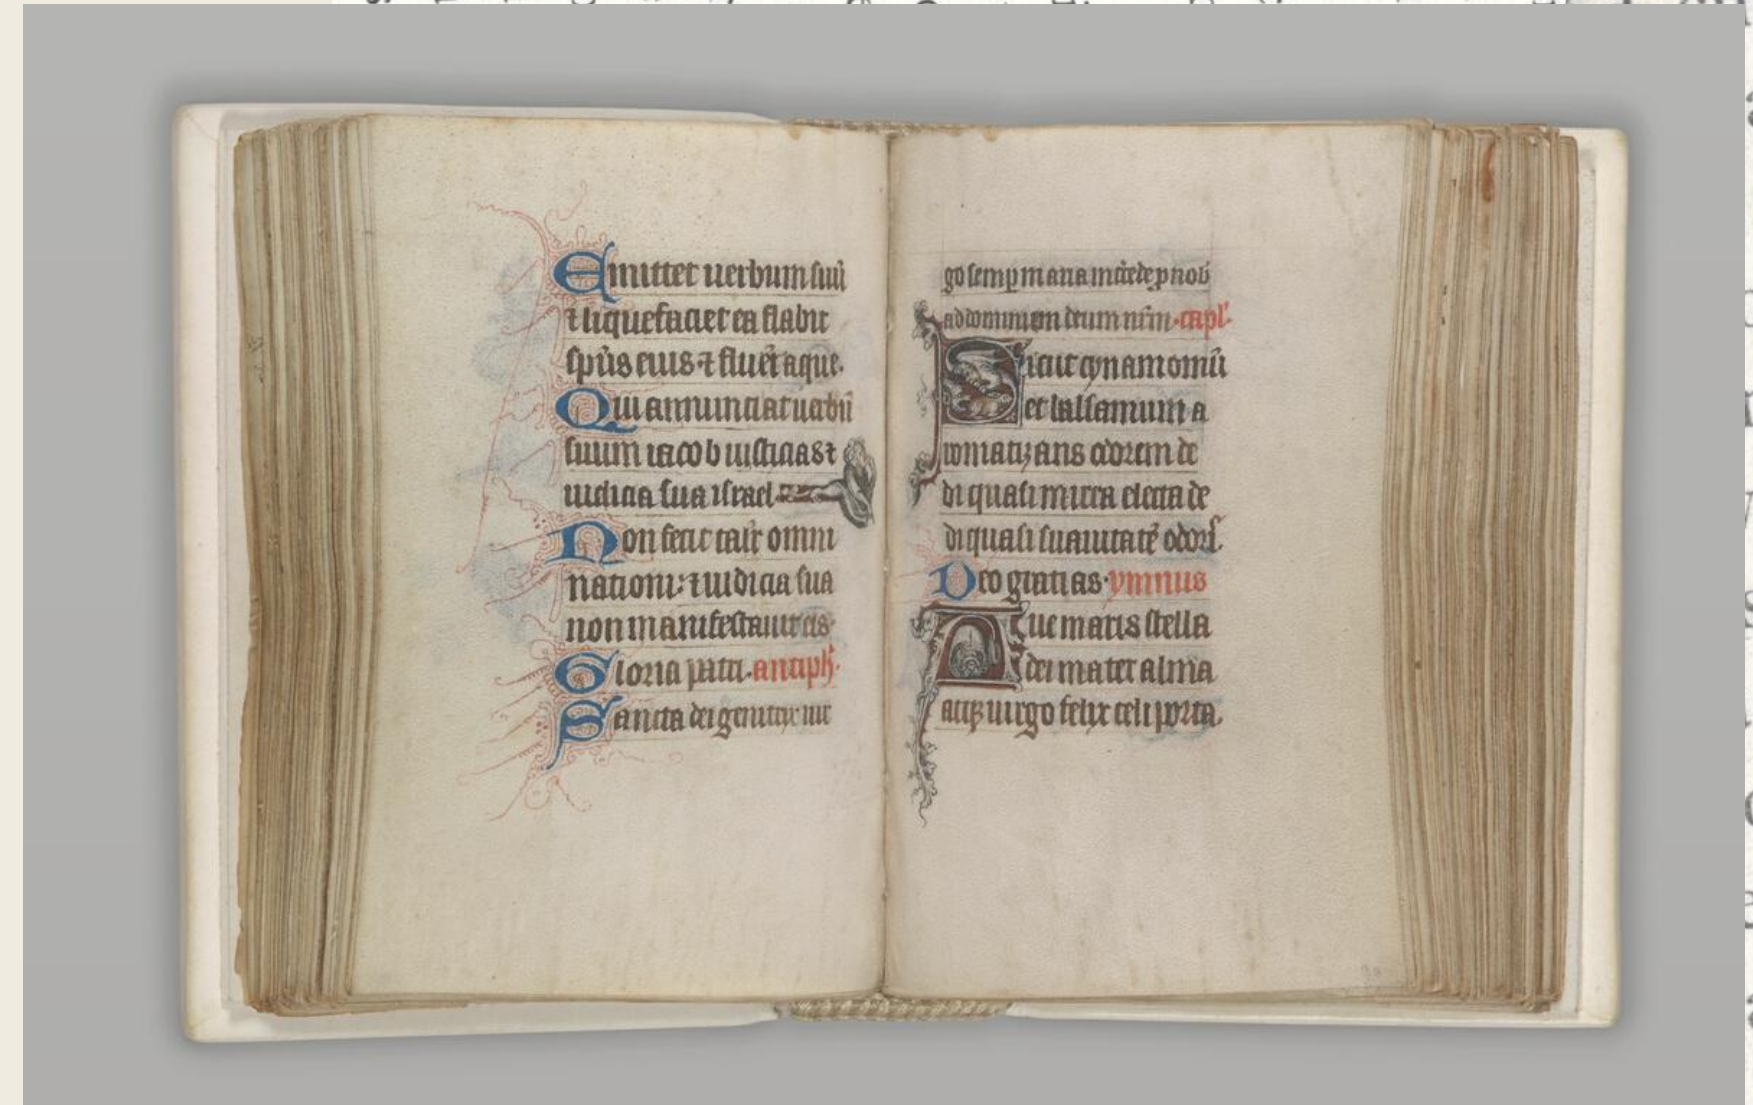 Emittet uerbum suū
⁊ liquefaciet ea flabit
sp̄us eius ⁊ fluēt aque.
Qui annunciat uerbū
suum iacob iusticias ⁊
iudicia sua israel
Non fecit talit̄ omni
nationi: ⁊ iudicia sua
non manifestauit eis.
Gloria patri. antiph̄.
Sancta dei genitrix uir
go semp̱ maria int̄cede p̱ nob̄
ad dominum deum nr̄m. capl̓.
Sicut cynamomū
et balsamum a
romatizans odorem de
di quasi mirra electa de
di quasi suauitatē odoris.
Deo gratias. ymnus
Aue maris stella
dei mater alma
atqꝫ uirgo felix celi porta.